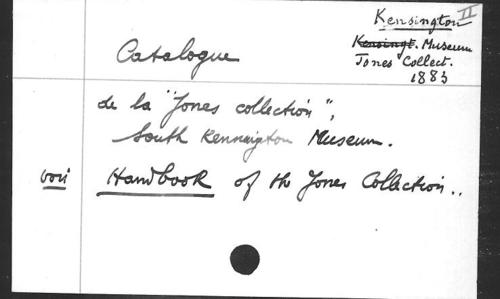 Kensington II
Kensingt. Museum
Jones Collect.
1883
Catalogue
de la "Jones collection",
South Kennsigton Museum.
voir Handbook of the Jones Collection..